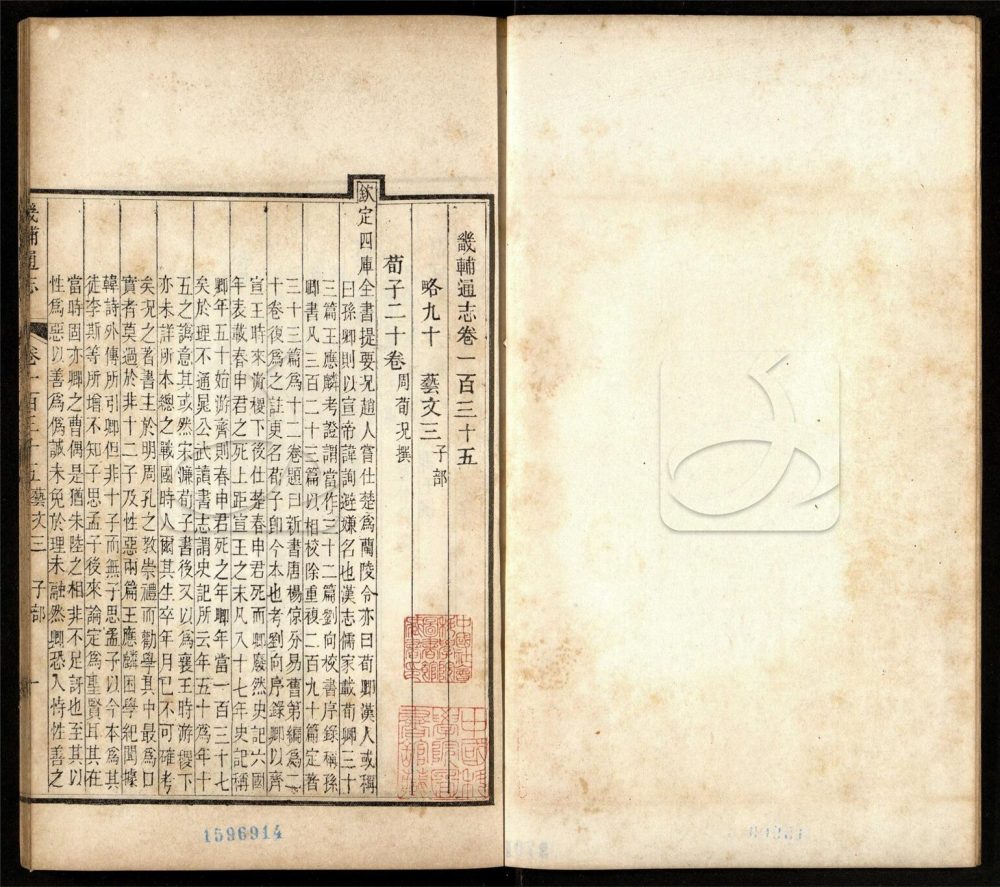 畿輔通志卷一百三十五
略九十 藝文三 子部
荀子二十卷 周荀況撰
欽定四庫全書提要況趙人嘗仕楚爲蘭陵令亦曰荀卿漢人或稱
曰孫卿則以宣帝諱詢避嫌名也漢志儒家載荀卿三十
三篇王應麟考證謂當作三十二篇劉向校書序錄稱孫
卿書凡三百二十三篇以相校除重複二百九十篇定著
三十三篇爲十二卷題曰新書唐楊倞分易舊第編爲二
十卷復爲之註更名荀子卽今本也考劉向序錄卿以齊
宣王時來游稷下後仕楚春申君死而卿廢然史記六國
年表載春申君之死上距宣王之末凡八十七年史記稱
卿年五十始游齊則春申君死之年卿年當一百三十七
矣於理不通晁公武讀書志謂史記所云年五十爲年十
五之譌意其或然宋濂荀子書後又以爲襄王時游稷下
亦未詳所本總之戰國時人爾其生卒年月已不可確考
矣況之著書主於明周孔之教崇禮而勸學其中最爲口
實者莫過於非十二子及性惡兩篇王應麟困學紀聞據
韓詩外傳所引卿但非十子而無子思孟子以今本爲其
徒李斯等所增不知子思孟子後來論定爲聖賢耳其在
當時固亦卿之曹偶是猶朱陸之相非不足訝也至其以
性爲惡以善爲僞誠未免於理未融然卿恐人恃性善之
畿輔通志 卷一百三十五 藝文三 子部 一
1596914